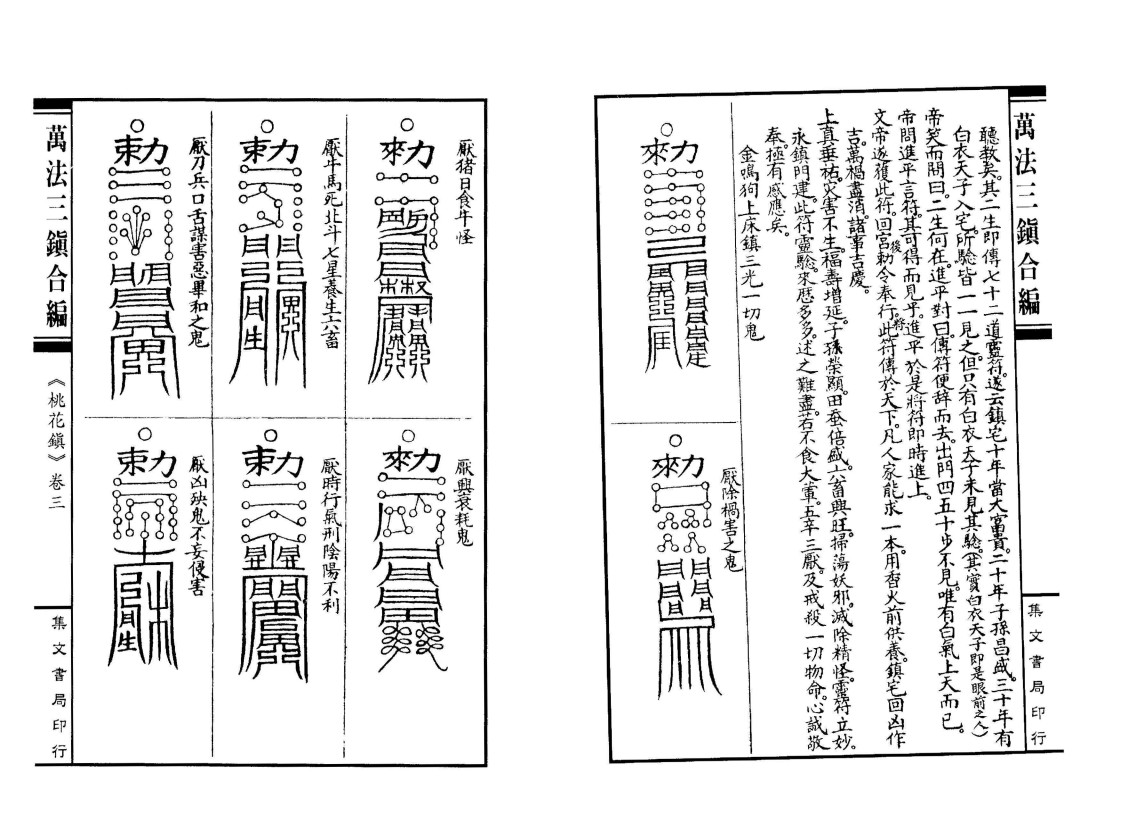 萬法三鎮合編
集文書局印行
聽教矣。其二生即傳七十二道靈符。遂云鎮宅十年當大富貴。二十年子孫昌盛。三十年有
白衣天子入宅。所驗皆一一見之。但只有白衣天子未見其驗。(其實白衣天子即是眼前之人)
帝笑而問曰。二生何在。進平對曰。傳符便辞而去。出門四五十步不見。唯有白氣上天而已。
帝問進平言符。其可得而見乎。進平於是將符即時進上。
文帝遂獲此符。回宮後勅令奉行。將此符傳於天下。凡人家能求一本。用香火前供養。鎮宅回凶作
吉。萬禍盡消。諸事吉慶。
上真垂祐。灾害不生。福壽增延。子孫榮顯。田蚕倍盛。六畜興旺。掃蕩妖邪。滅除精怪。靈符立妙。
永鎮門建。此符靈驗。來歷多多。述之難盡。若不食大葷。五辛三厭。及戒殺一切物命。心誠敬
奉。極有感應矣。
金鳴狗上床鎮三光一切鬼
勅
厭除禍害之鬼
勅
厭猪日食牛怪
勅
厭牛馬死北斗七星養生六畜
勅
厭刀兵口舌謀害惡畢和之鬼
勅
厭興衰耗鬼
勅
厭時行氣刑陰陽不利
勅
厭凶殃鬼不妄侵害
勅
萬法三鎮合編
《桃花鎮》卷三
集文書局印行